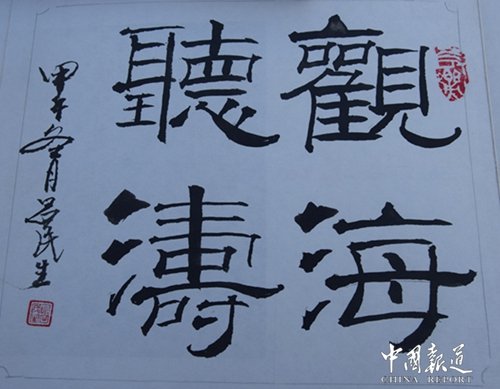 觀海
聽濤
甲午冬月吕民生
中國報道
CHINA REPORT